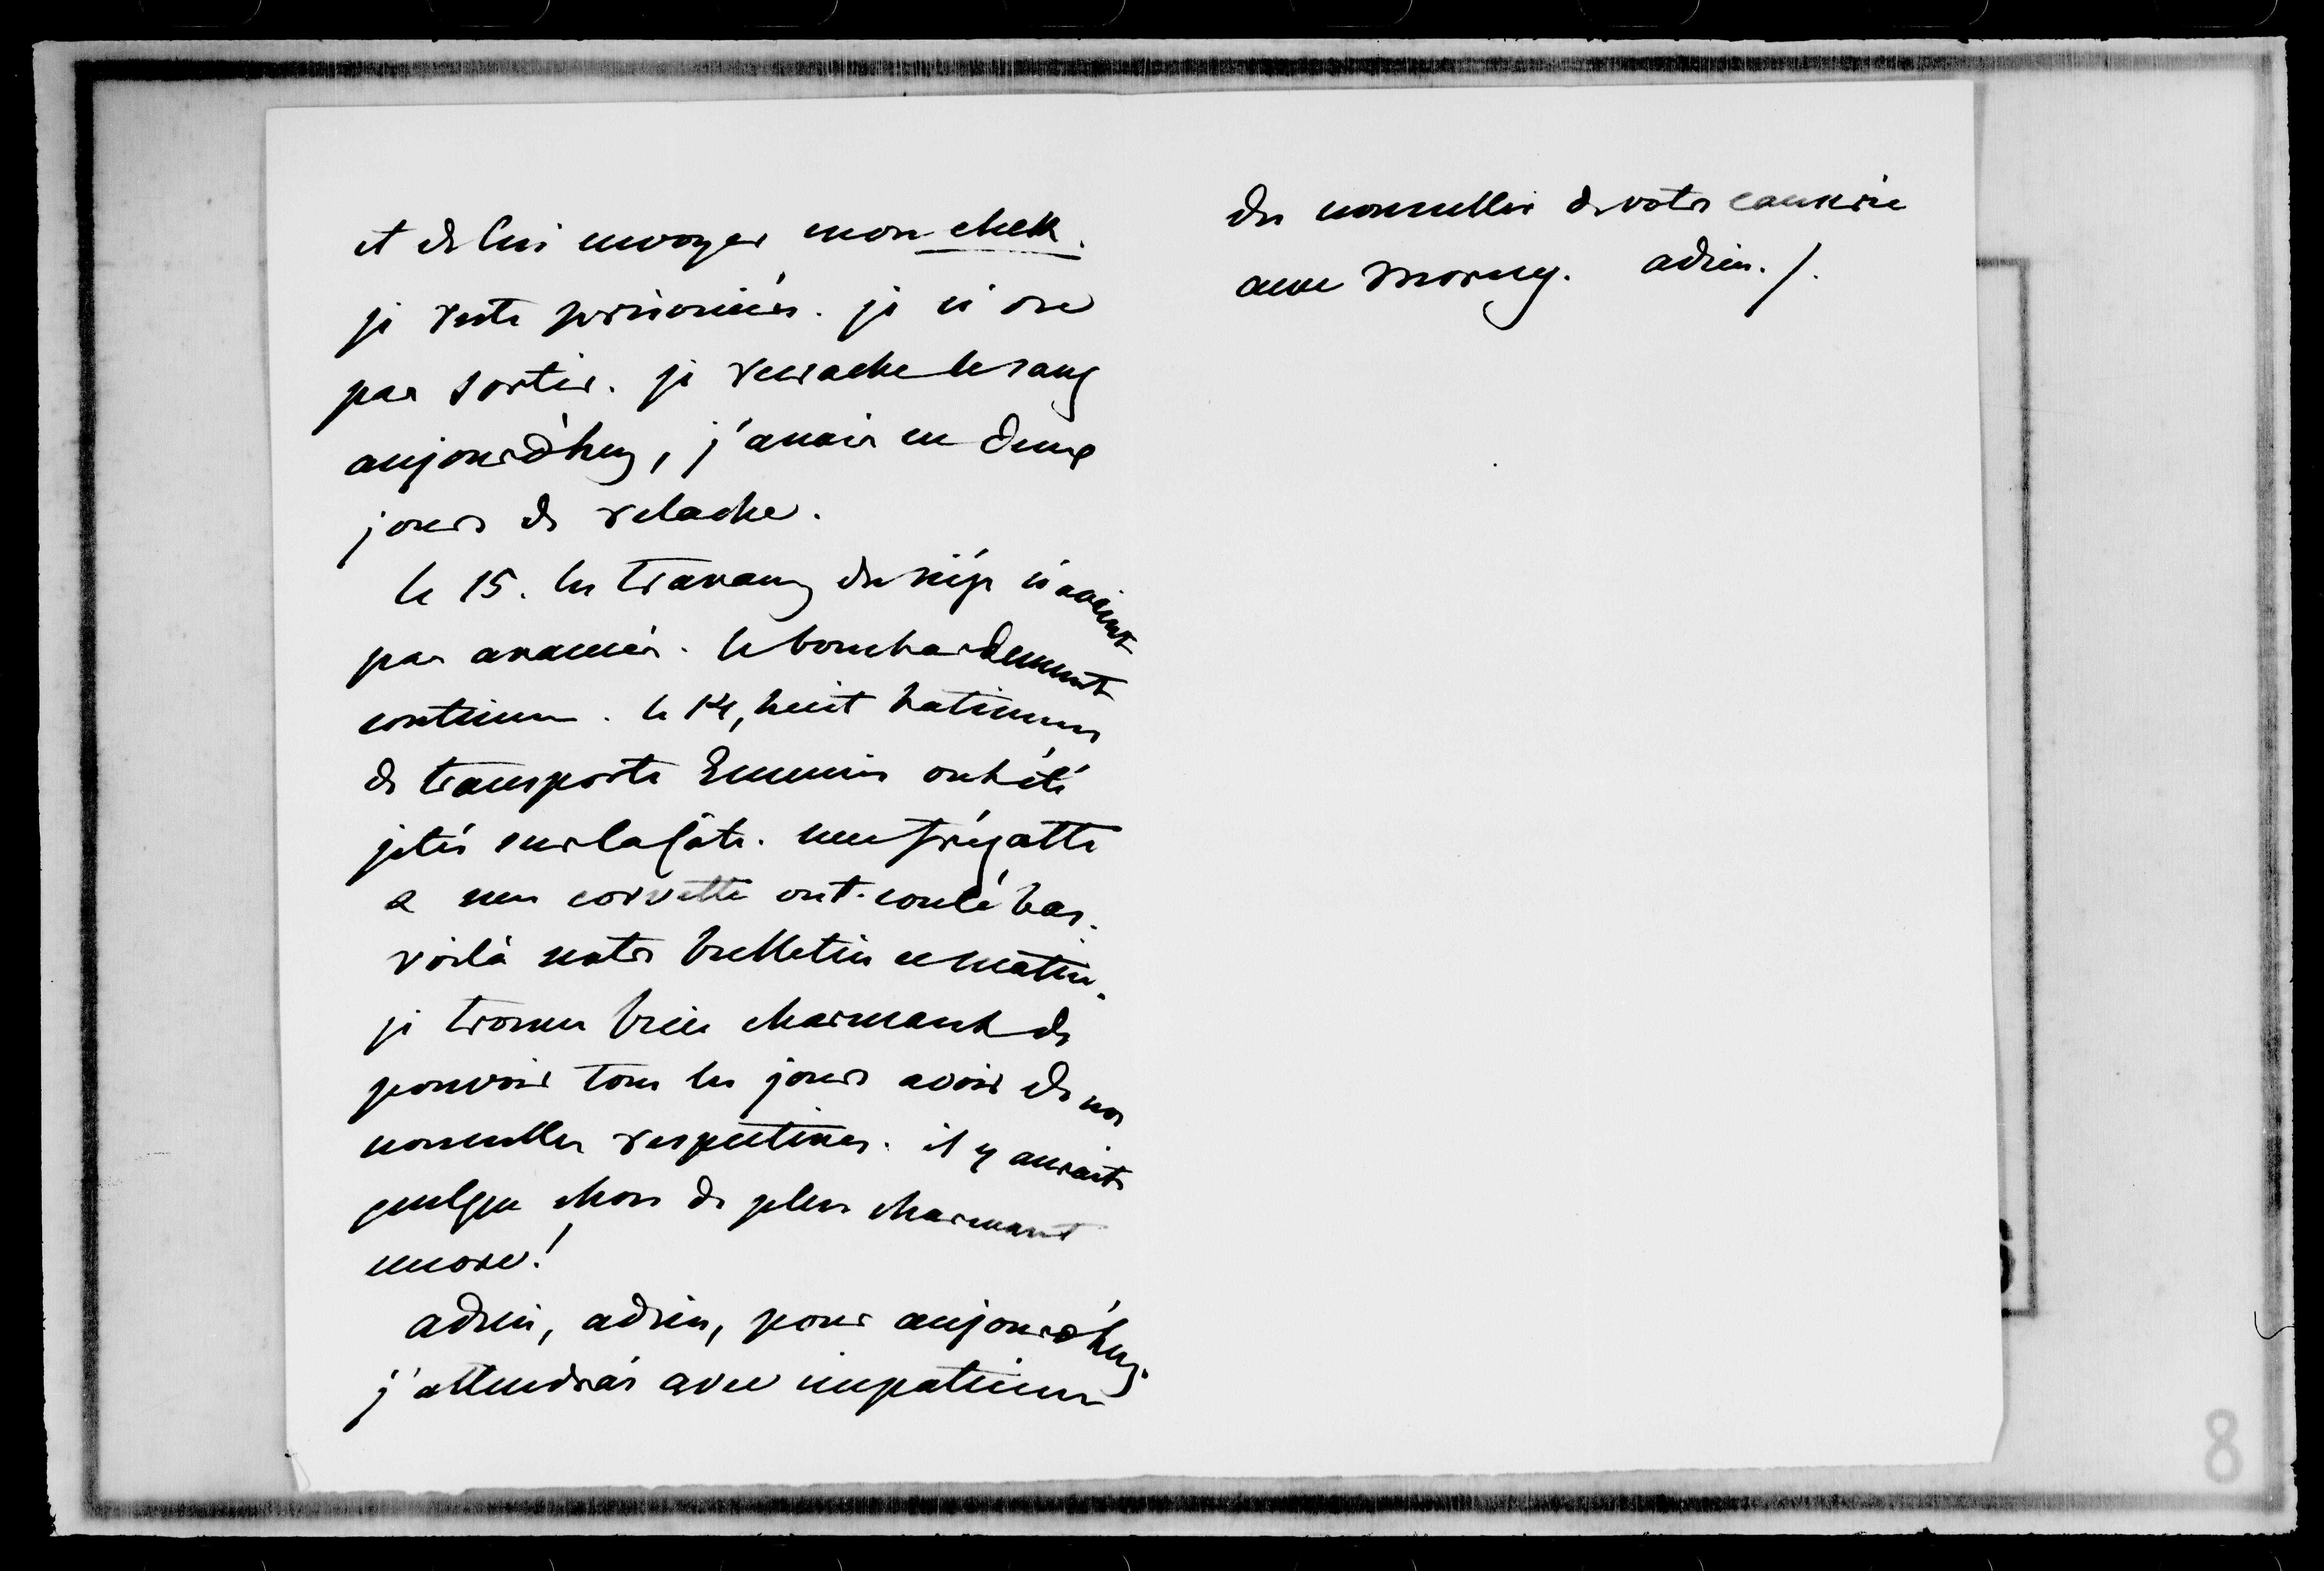 et de lui envoyer mon chek.
je reste prisonnier. je n'ose
pas sortir. je recrache le sang
aujourd'huy, j'avais eu deux
jours de relache.
le 15. les travaux du siége n'avaient
pas avancés. le bombardement
continue. le 14, huit batimens
de transports Ennemis ont été
jetés sur la côte. une frégatte
& une corvette ont coulé bas.
voilà notre bulletin ce matin.
je trouve bien charmant de
pouvoir tous les jours avoir de nos
nouvelles respectives. il y aurait
quelque chose de plus charmant
encore!
adieu, adieu, pour aujourd'huy.
j'attendrai avec impatience
des nouvelles de votre causerie
avec Morny. adieu. /.
8